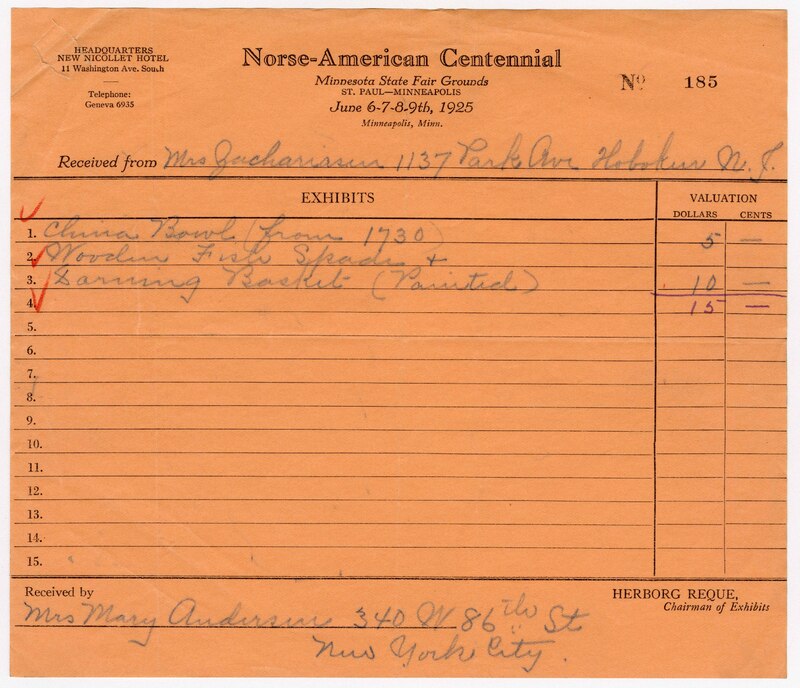 HEADQUARTERS
NEW NICOLLET HOTEL
11 Washington Ave. South
Telephone:
Geneva 6935
Norse-American Centennial
Minnesota State Fair Grounds
ST. PAUL—MINNEAPOLIS
June 6-7-8-9th, 1925
Minneapolis, Minn.
No 185
Received from Mrs Zacharissen 1137 Park Ave Hoboken N. J.
EXHIBITS
VALUATION
DOLLARS CENTS
1. China Bowl (from 1730) 5 —
2. Wooden Fish Spade +
3. Darning Basket (Painted) 10 —
4. 15 —
5.
6.
7.
8.
9.
10.
11.
12.
13.
14.
15.
Received by
Mrs Mary Andersen 340 W 86th St
New York City.
HERBORG REQUE,
Chairman of Exhibits